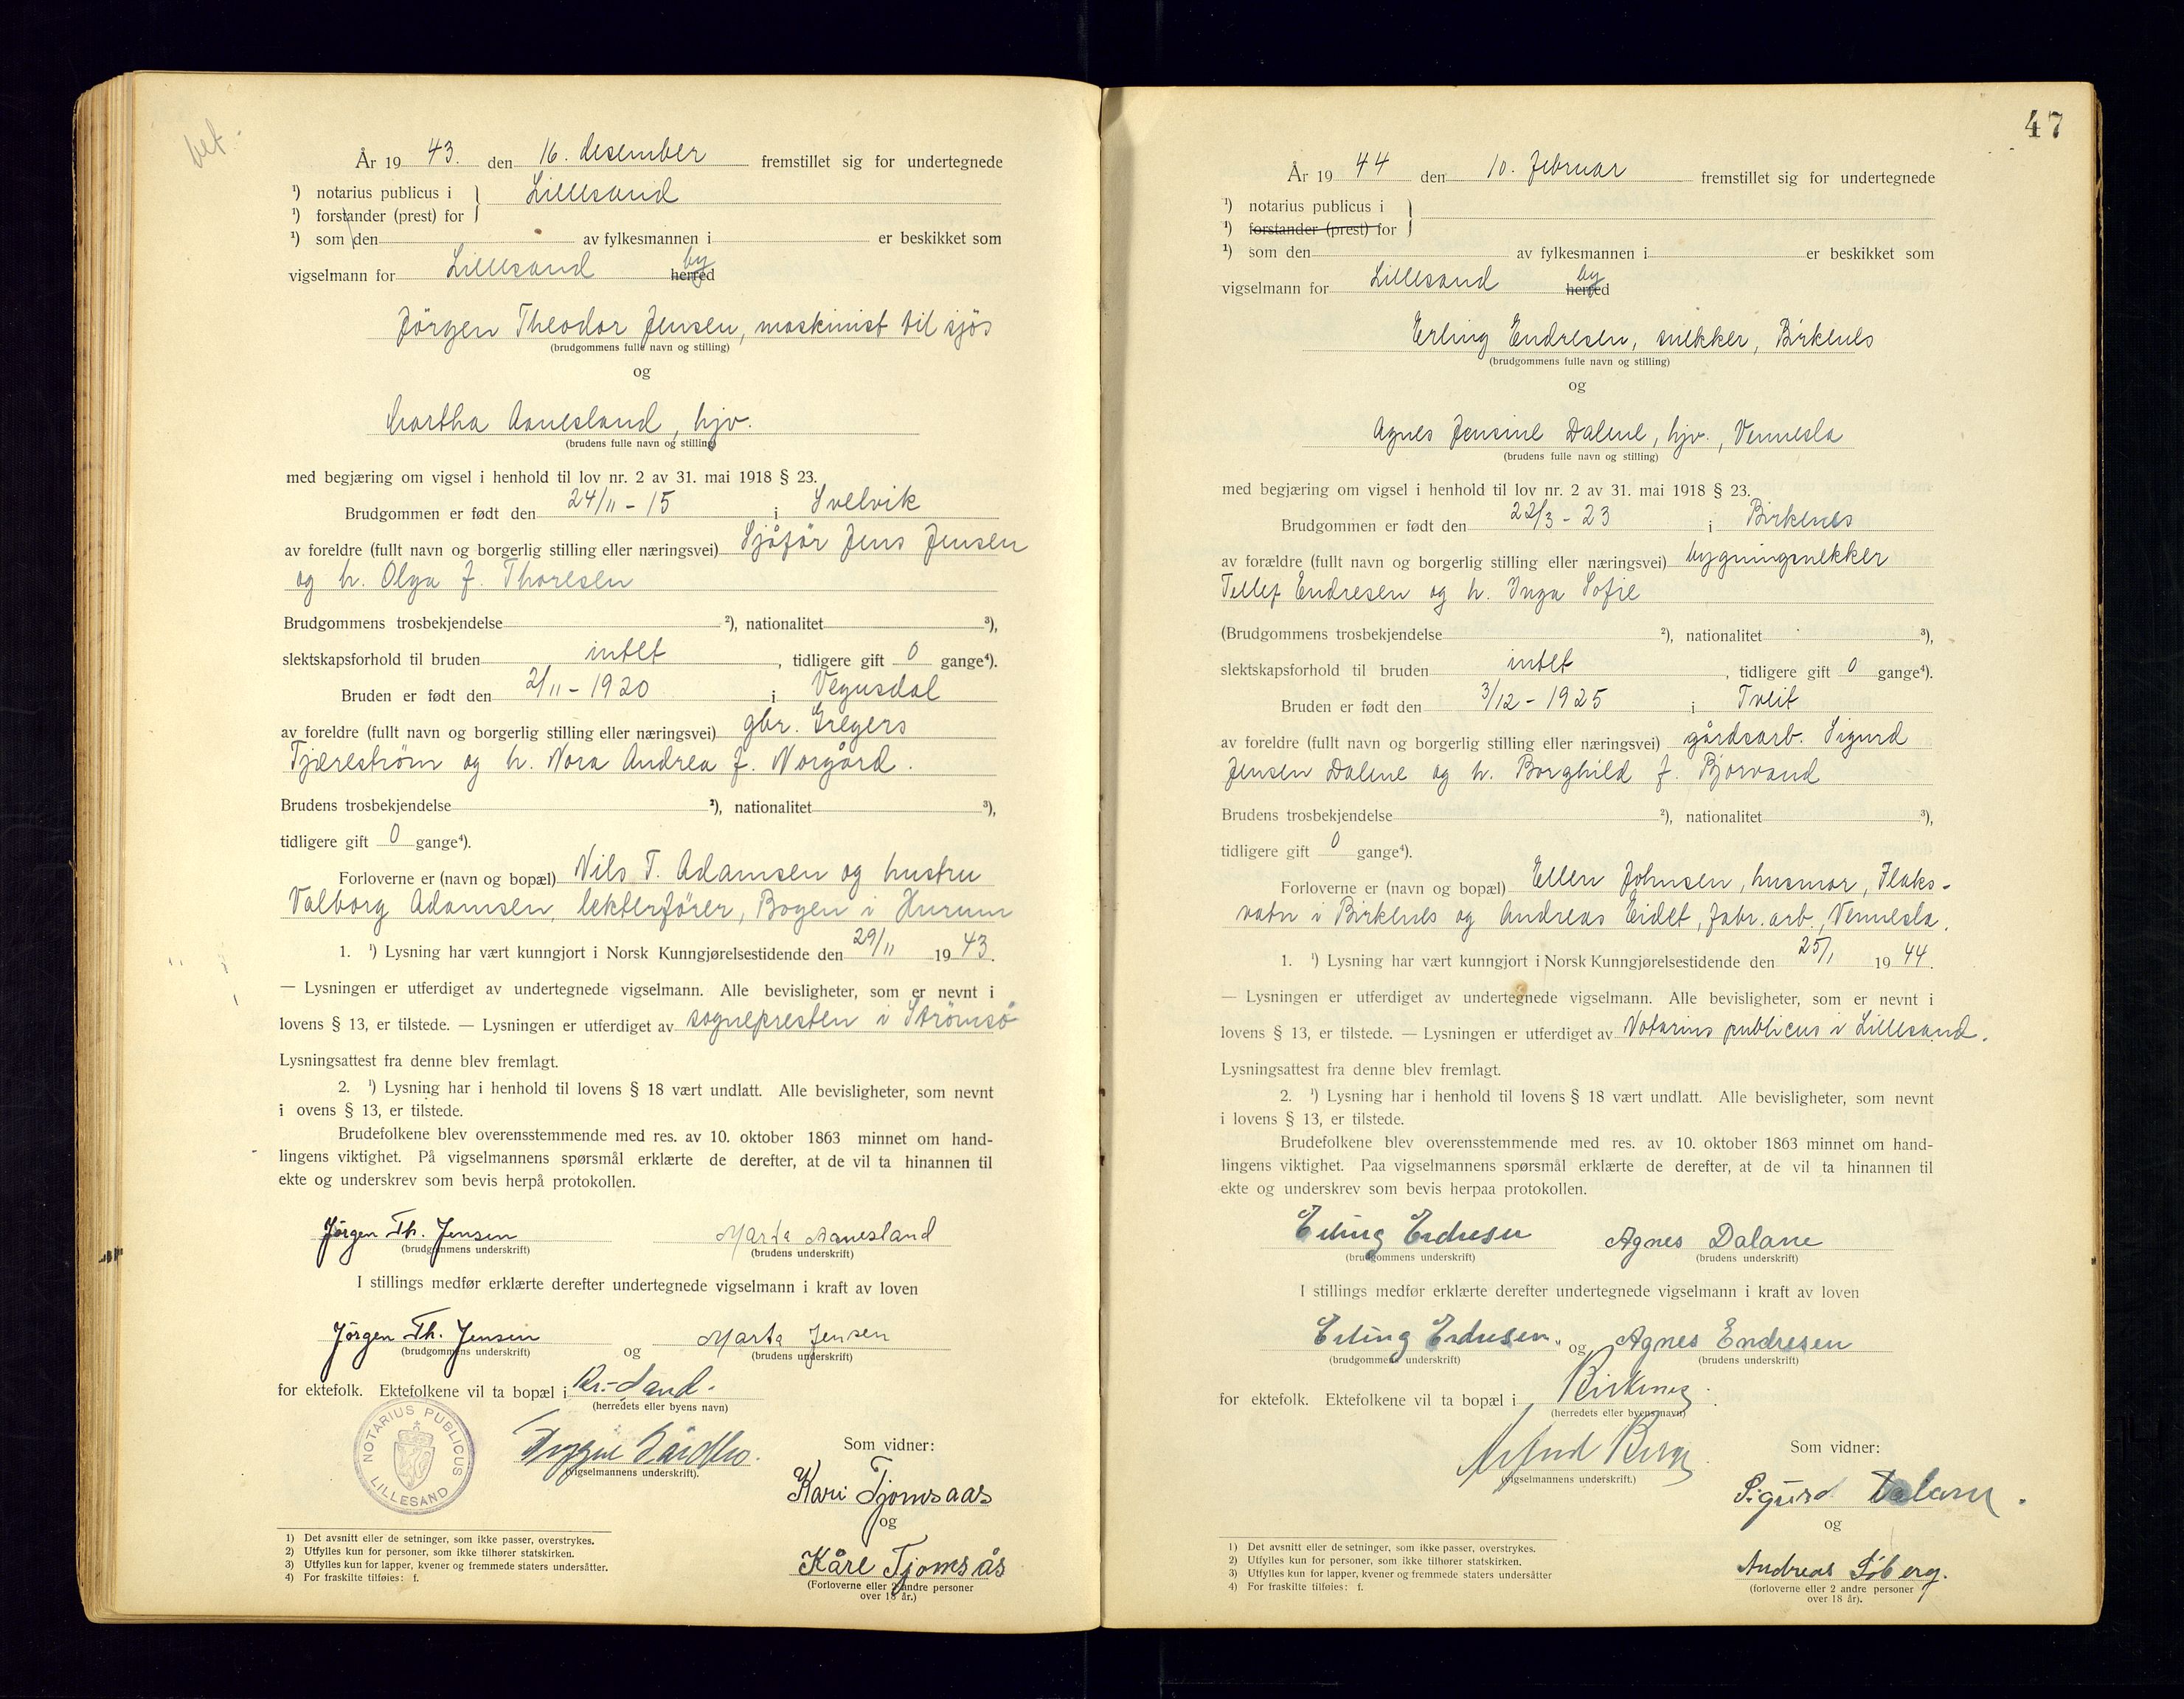 bet.
År 19 43. den 16. desember fremstillet sig for undertegnede
¹) notarius publicus i } Lillesand
¹) forstander (prest) for
¹) som den av fylkesmannen i er beskikket som
vigselmann for Lillesand herred by
Jörgen Theodor Jensen, maskinist til sjös
(brudgommens fulle navn og stilling)
og
Martha Aanesland, hjv.
(brudens fulle navn og stilling)
med begjæring om vigsel i henhold til lov nr. 2 av 31. mai 1918 § 23.
Brudgommen er født den 24/11 - 15 i Svelvik
av foreldre (fullt navn og borgerlig stilling eller næringsvei) Sjåför Jens Jensen
og h. Olga f. Thoresen
Brudgommens trosbekjendelse ²), nationalitet ³),
slektskapsforhold til bruden intet, tidligere gift 0 gange⁴).
Bruden er født den 2/11 - 1920 i Vegusdal
av foreldre (fullt navn og borgerlig stilling eller næringsvei) gbr. Gregers
Tjærestrøm og h. Nora Andrea f. Norgård.
Brudens trosbekjendelse ²), nationalitet ³),
tidligere gift 0 gange⁴).
Forloverne er (navn og bopæl) Nils T. Adamsen og hustru
Valborg Adamsen, lekterfører, Bogen i Hurum
1. ¹) Lysning har vært kunngjort i Norsk Kunngjørelsestidende den 29/11 19 43.
— Lysningen er utferdiget av undertegnede vigselmann. Alle bevisligheter, som er nevnt i
lovens § 13, er tilstede. — Lysningen er utferdiget av sognepresten i Strömsö
Lysningsattest fra denne blev fremlagt.
2. ¹) Lysning har i henhold til lovens § 18 vært undlatt. Alle bevisligheter, som nevnt
i ovens § 13, er tilstede.
Brudefolkene blev overensstemmende med res. av 10. oktober 1863 minnet om hand-
lingens viktighet. På vigselmannens spørsmål erklærte de derefter, at de vil ta hinannen til
ekte og underskrev som bevis herpå protokollen.
Jørgen Th. Jensen Marta Aanesland
(brudgommens underskrift) (brudens underskrift)
I stillings medfør erklærte derefter undertegnede vigselmann i kraft av loven
Jørgen Th. Jensen og Marta Jensen
(brudgommens underskrift) (brudens underskrift)
for ektefolk. Ektefolkene vil ta bopæl i Kr.-Sand.
(herredets eller byens navn)
NOTARIUS PUBLICUS LILLESAND
(vigselmannens underskrift).
Som vidner:
Kari Tjomsaas
og
Kåre Tjomsås
(Forloverne eller 2 andre personer
over 18 år.)
1) Det avsnitt eller de setninger, som ikke passer, overstrykes.
2) Utfylles kun for personer, som ikke tilhører statskirken.
3) Utfylles kun for lapper, kvener og fremmede staters undersåtter.
4) For fraskilte tilføies: f.
47
År 19 44 den 10. februar fremstillet sig for undertegnede
¹) notarius publicus i }
¹) forstander (prest) for
¹) som den av fylkesmannen i er beskikket som
vigselmann for Lillesand herred by
Erling Endresen, snekker, Birkenes
(brudgommens fulle navn og stilling)
og
Agnes Jensine Dalene, hjv., Vennesla
(brudens fulle navn og stilling)
med begjæring om vigsel i henhold til lov nr. 2 av 31. mai 1918 § 23.
Brudgommen er født den 22/3 - 23 i Birkenes
av forældre (fullt navn og borgerlig stilling eller næringsvei) bygningsnekker
Tellef Endresen og h. Inga Sofie
(Brudgommens trosbekjendelse ²), nationalitet ³),
slektskapsforhold til bruden intet, tidligere gift 0 gange⁴).
Bruden er født den 3/12 - 1925 i Tveit
av foreldre (fullt navn og borgerlig stilling eller næringsvei) gårdsarb. Sigurd
Jensen Dalene og h. Borghild f. Bjorvand
Brudens trosbekjendelse ²), nationalitet ³),
tidligere gift 0 gange⁴).
Forloverne er (navn og bopæl) Ellen Johnsen, husmor, Flaks-
vatn i Birkenes og Andreas Eidet, fabr.arb., Vennesla.
1. ¹) Lysning har vært kunngjort i Norsk Kunngjørelsestidende den 25/1 19 44.
— Lysningen er utferdiget av undertegnede vigselmann. Alle bevisligheter, som er nevnt i
lovens § 13, er tilstede. — Lysningen er utferdiget av Notarius publicus i Lillesand.
Lysningsattest fra denne blev fremlagt.
2. ¹) Lysning har i henhold til lovens § 18 vært undlatt. Alle bevisligheter, som nevnt
i lovens § 13, er tilstede.
Brudefolkene blev overensstemmende med res. av 10. oktober 1863 minnet om hand-
lingens viktighet. Paa vigselmannens spørsmål erklærte de derefter, at de vil ta hinannen til
ekte og underskrev som bevis herpaa protokollen.
Erling Endresen Agnes Dalane
(brudgommens underskrift) (brudens underskrift)
I stillings medfør erklærte derefter undertegnede vigselmann i kraft av loven
Erling Endresen og Agnes Endresen
(brudgommens underskrift) (brudens underskrift)
for ektefolk. Ektefolkene vil ta bopæl i Birkenes.
(herredets eller byens navn)
(vigselmannens underskrift.)
Som vidner:
Sigurd Dalane.
og
Andreas Söberg.
(forloverne eller 2 andre personer
over 18 år).
1) Det avsnitt eller de setninger, som ikke passer, overstrykes.
2) Utfylles kun for personer, som ikke tilhører statskirken.
3) Utfylles kun for lapper, kvener og fremmede staters undersåtter
4) For fraskilte tilføies: f.